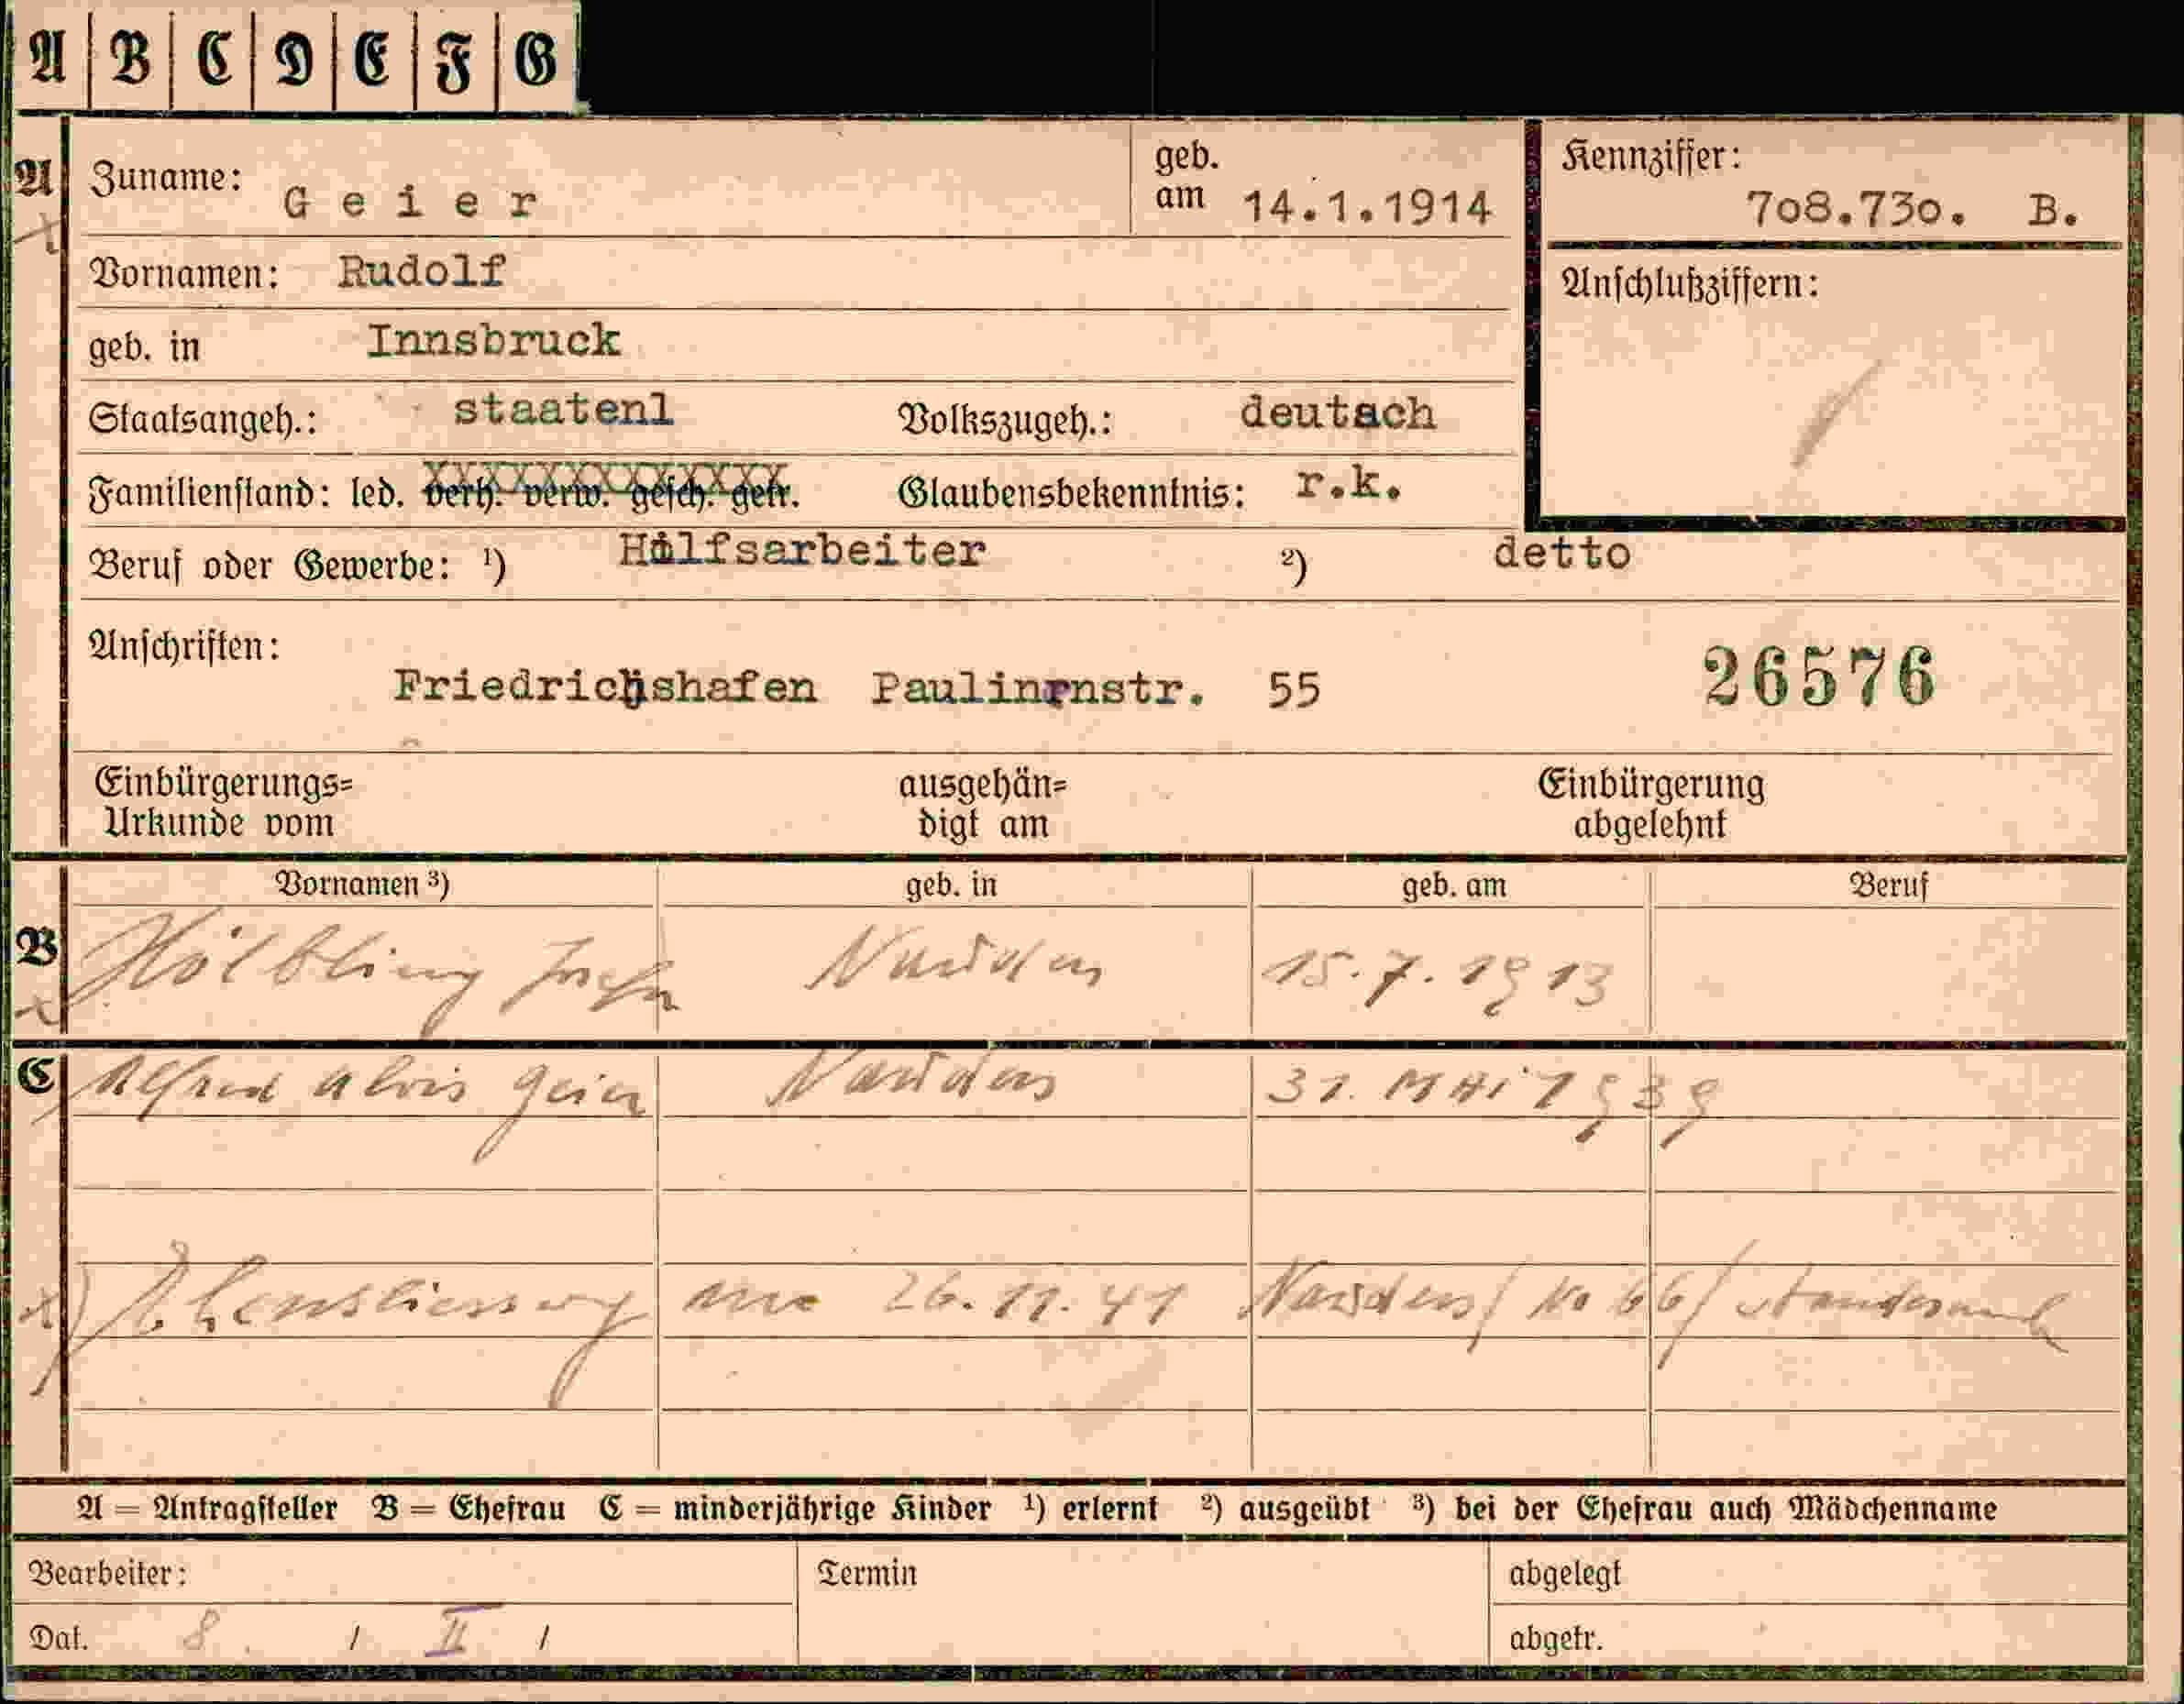 A B C D E F G
A Zuname: Geier geb. am 14.1.1914 Kennziffer: 708.730. B.
Vornamen: Rudolf Anschlußziffern:
geb. in Innsbruck
Staatsangeh.: staatenl Volkszugeh.: deutsch
Familienstand: led. verh. verw. gesch. getr. Glaubensbekenntnis: r.k.
Beruf oder Gewerbe: ¹) Hilfsarbeiter ²) detto
Anschriften:
Friedrichshafen Paulinenstr. 55 26576
Einbürgerungs= ausgehän= Einbürgerung
Urkunde vom digt am abgelehnt
Vornamen ³) geb. in geb. am Beruf
B Hölbling Nauders 15.7.1913
C Alfred Alois Geier Nauders 31. Mai 1939
26.11.41 Nauders / No 66 / Standesamt
A = Antragsteller B = Ehefrau C = minderjährige Kinder ¹) erlernt ²) ausgeübt ³) bei der Ehefrau auch Mädchenname
Bearbeiter: Termin abgelegt
Dat. 8. / II / abgetr.